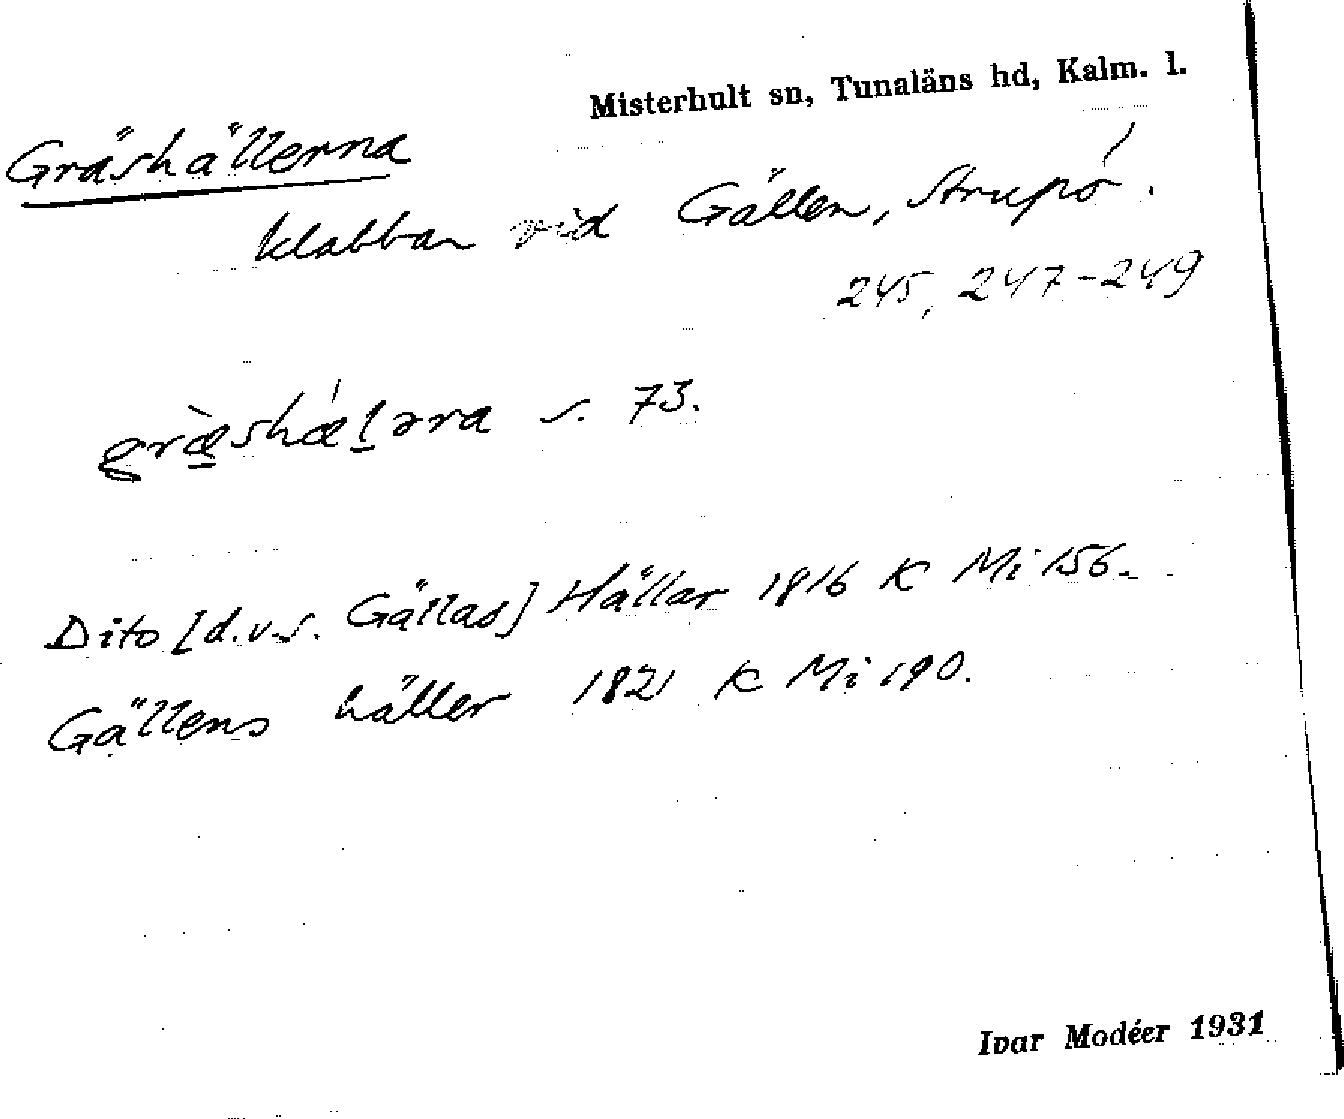 Misterhult sn, Tunaläns hd, Kalm. l.
Gräshällerna
klabbar vid Gällen, Strupö.
245, 247-249
græ̀shæ̀ḷərna s. 73.
Dito [d.v.s. Gällas] Hällar 1816 K Mi 156.
Gällens häller 1821 K Mi 190.
Ivar Modéer 1931